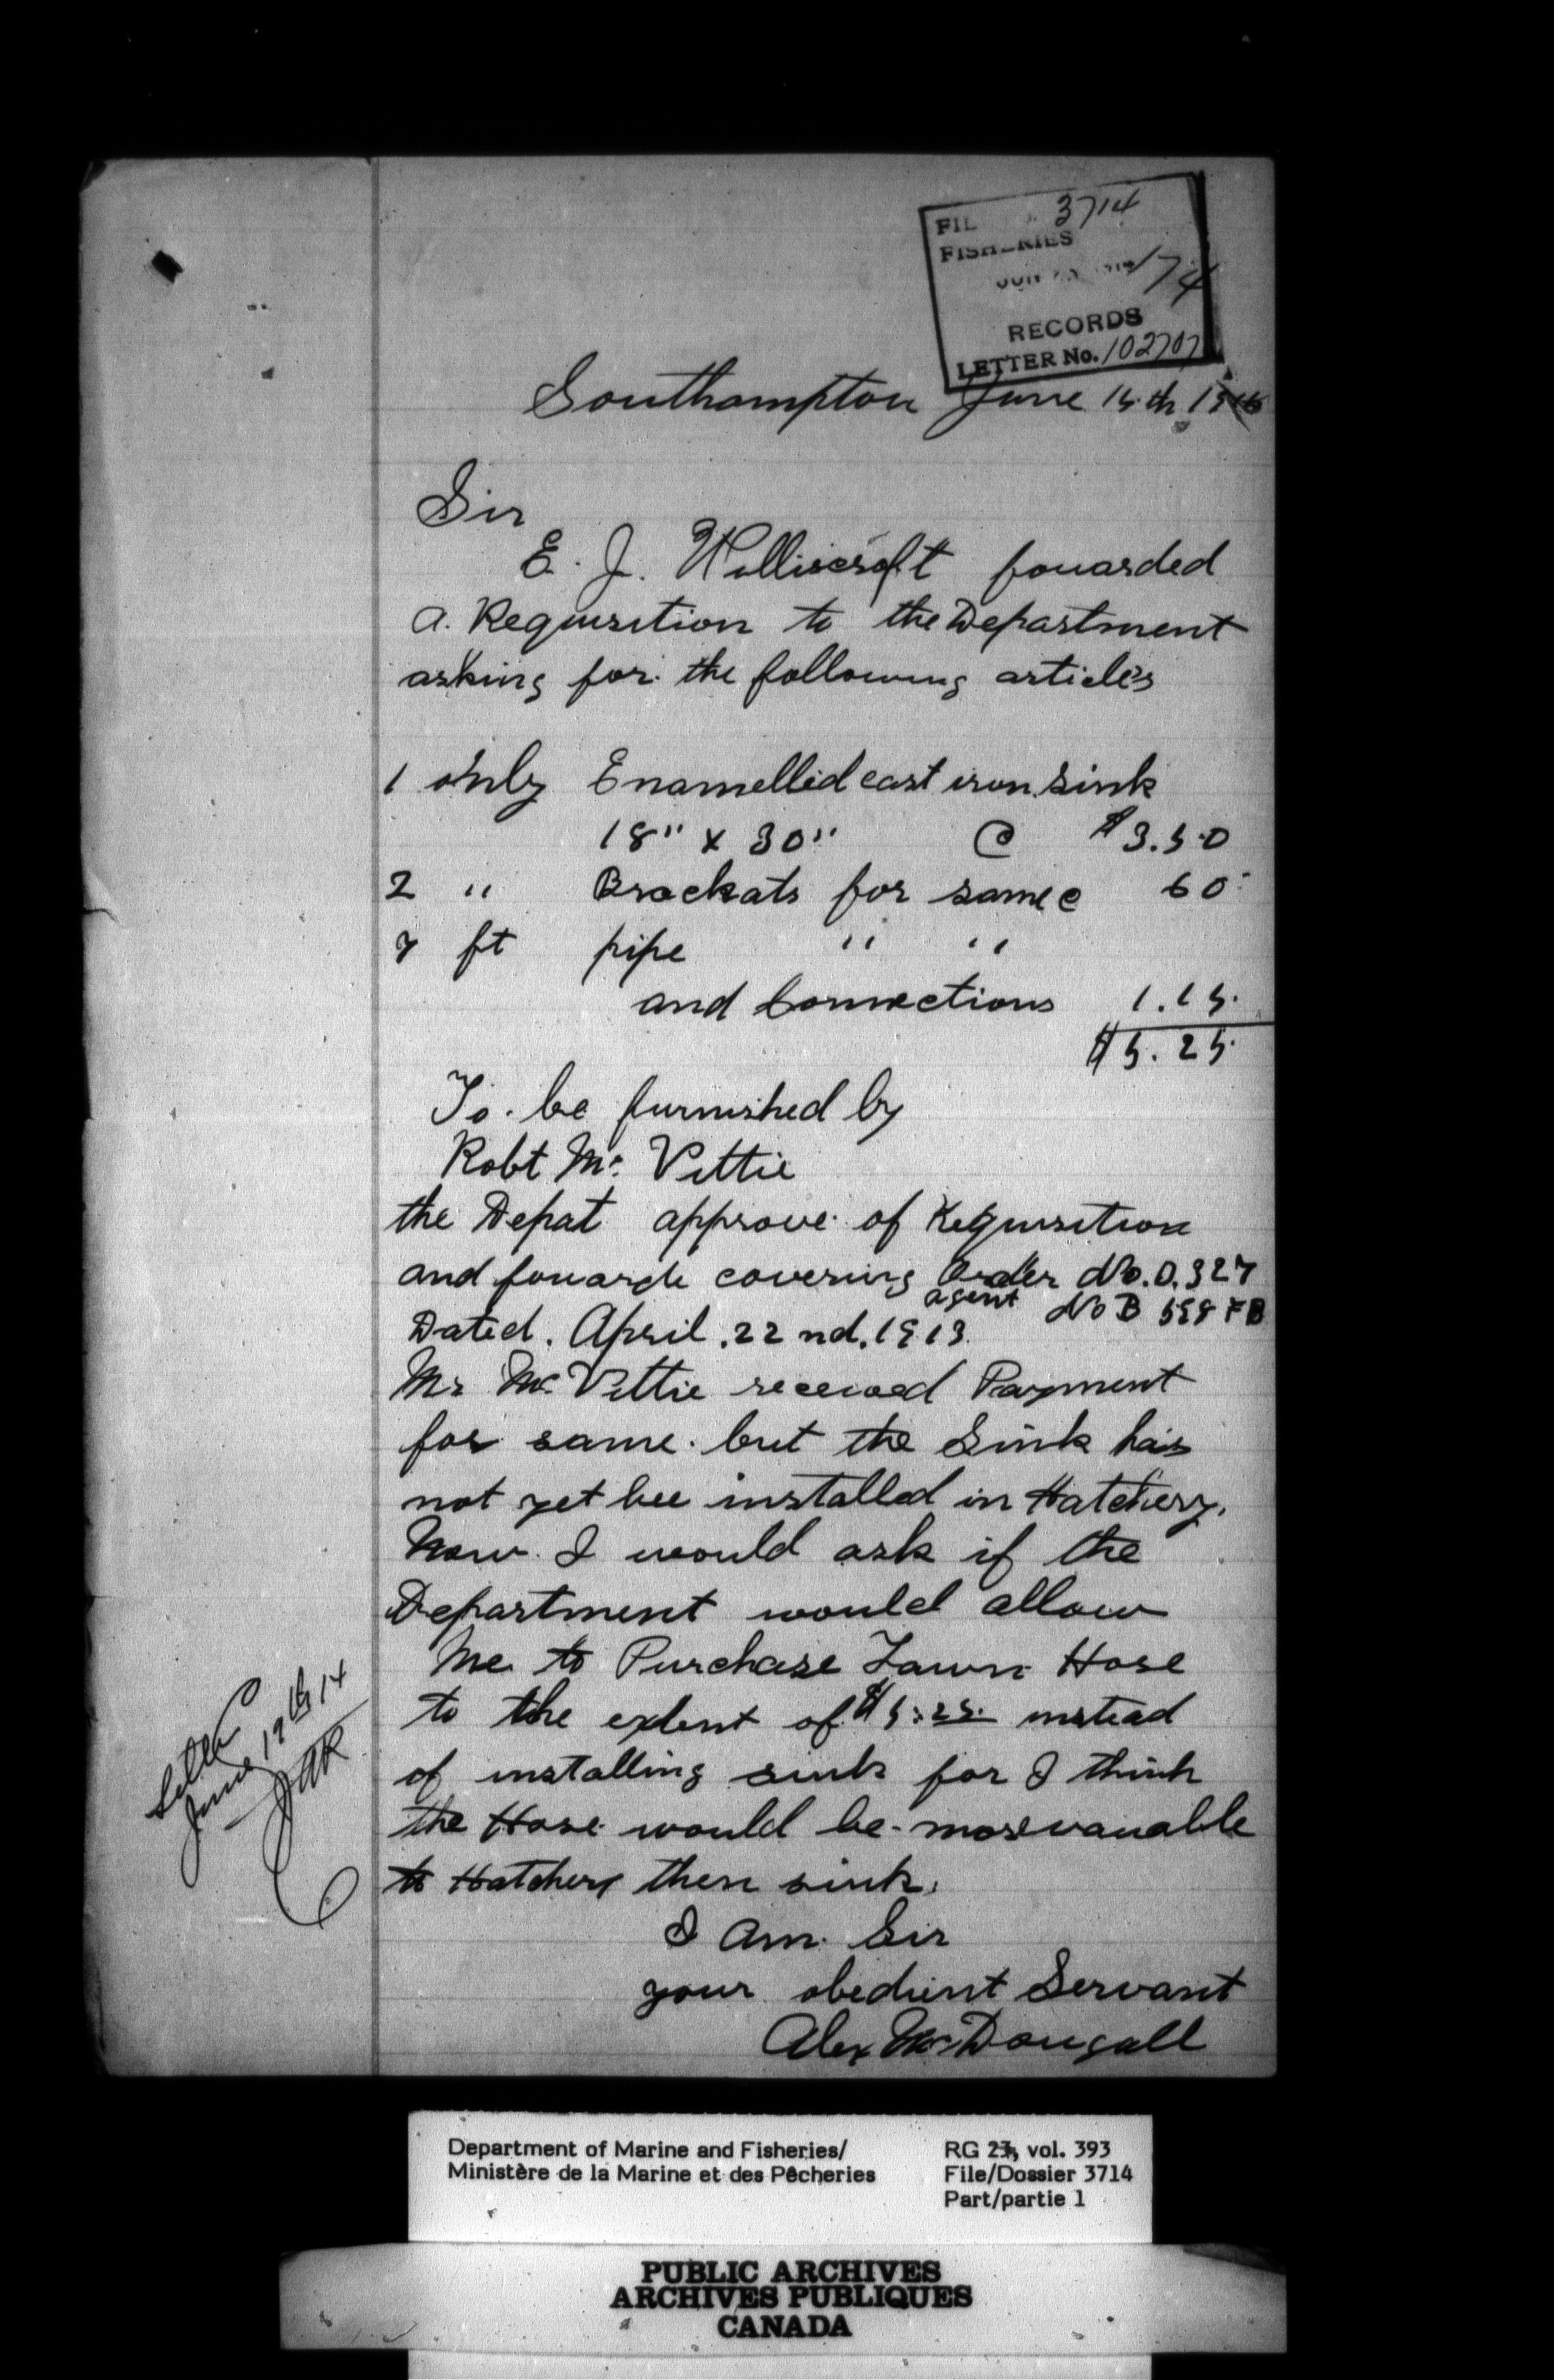 FIL 3714
FISHERIES
JUN 1914 174
RECORDS
LETTER No. 102707
Southampton June 15th
Sir
E. J. Williscroft fouarded
a. Requisition to the Department
asking for the following articles
1 only Enamellid cast iron Sink
18" x 30" @ $3.50
2 " Brackats for same @ 60
7 ft pipe " "
and Connections 1.15
$5.25
To be furnished by
Robt Mc Vittie
the Depat approve of Requisition
and fouarde covering Order No. D. 327
agent No B 598 FB
Dated. April. 22 nd. 1913
Mr Mc Vittie received Payment
for same but the Sink has
not yet bee installed in Hatchery.
Now I would ask if the
Department would allow
Me to Purchase Lawn Hose
to the extent of $5.25 instead
of installing sink for I think
the Hose would be more vauable
to Hatchery then sink.
I Am Sir
your obedient Servant
Alex McDougall
Letter
June 19th 14
JAR
Department of Marine and Fisheries/
Ministère de la Marine et des Pêcheries
RG 23, vol. 393
File/Dossier 3714
Part/partie 1
PUBLIC ARCHIVES
ARCHIVES PUBLIQUES
CANADA